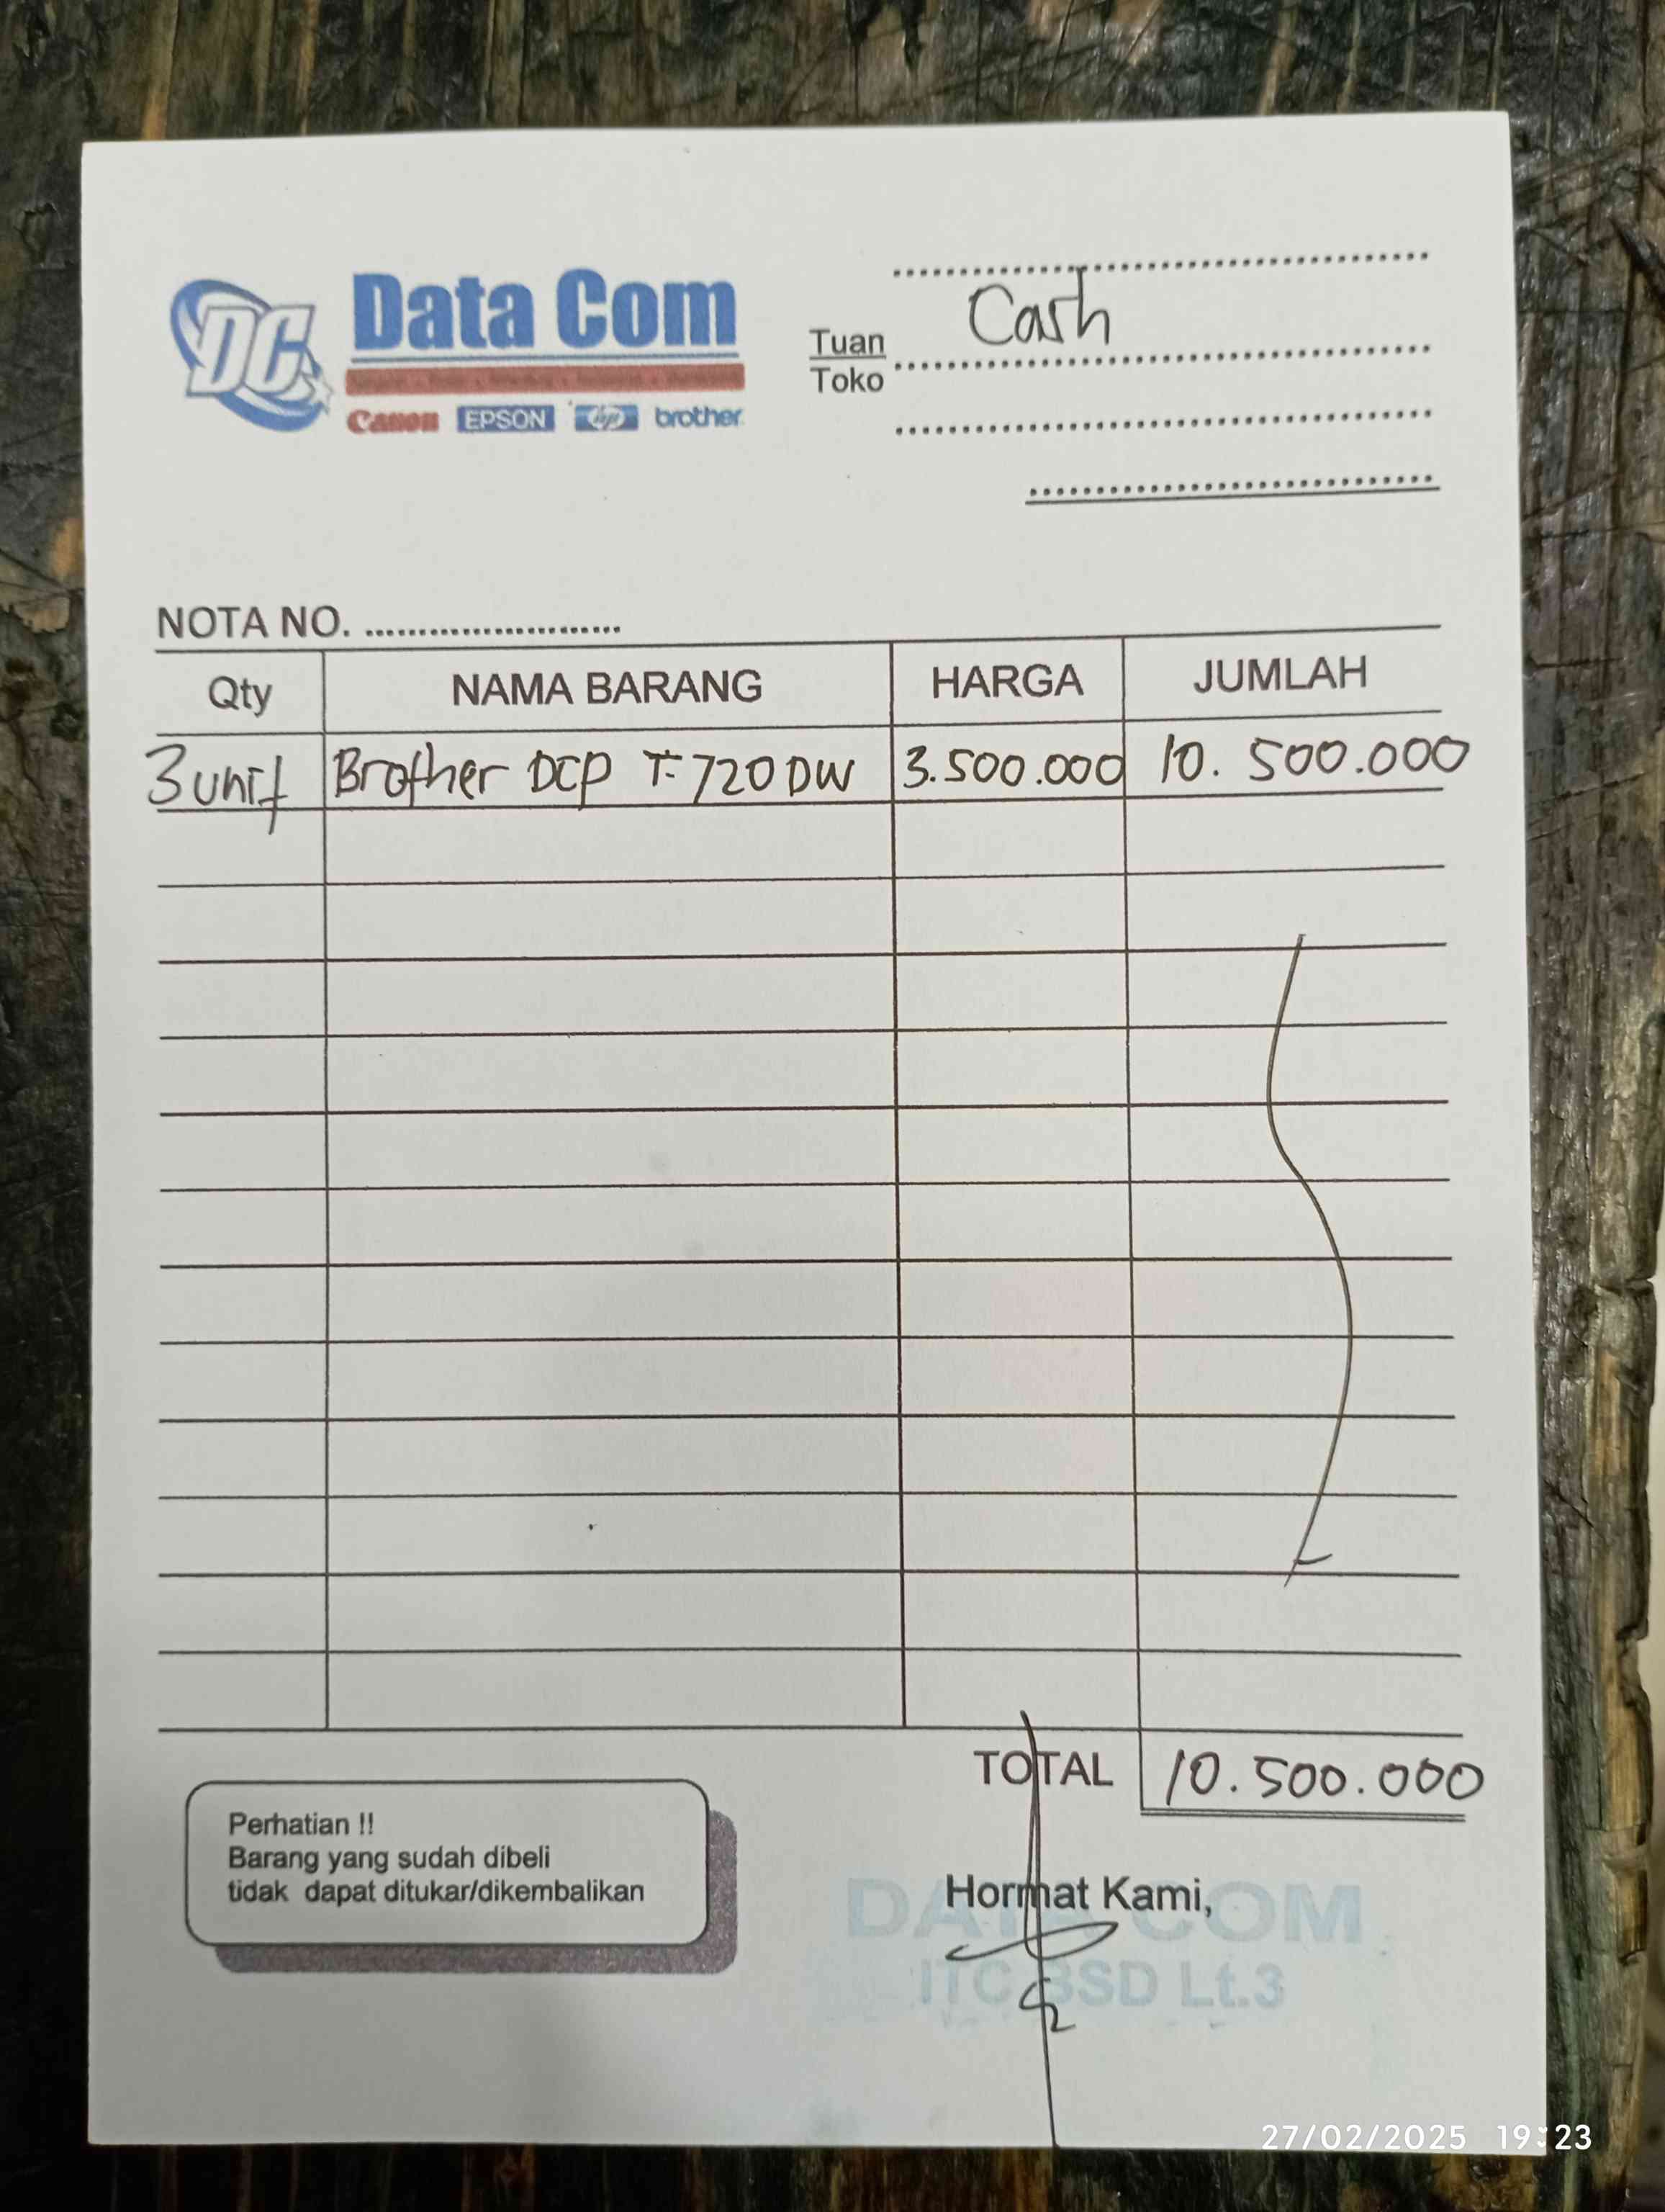 DC Data Com
Canon EPSON hp brother
Cash
Tuan
Toko
NOTA NO. ........................
Qty NAMA BARANG HARGA JUMLAH
3 unit Brother DCP T-720DW 3.500.000 10.500.000
TOTAL 10.500.000
Perhatian !!
Barang yang sudah dibeli
tidak dapat ditukar/dikembalikan
Hormat Kami,
DATA COM
ITC BSD Lt.3
27/02/2025 19:23